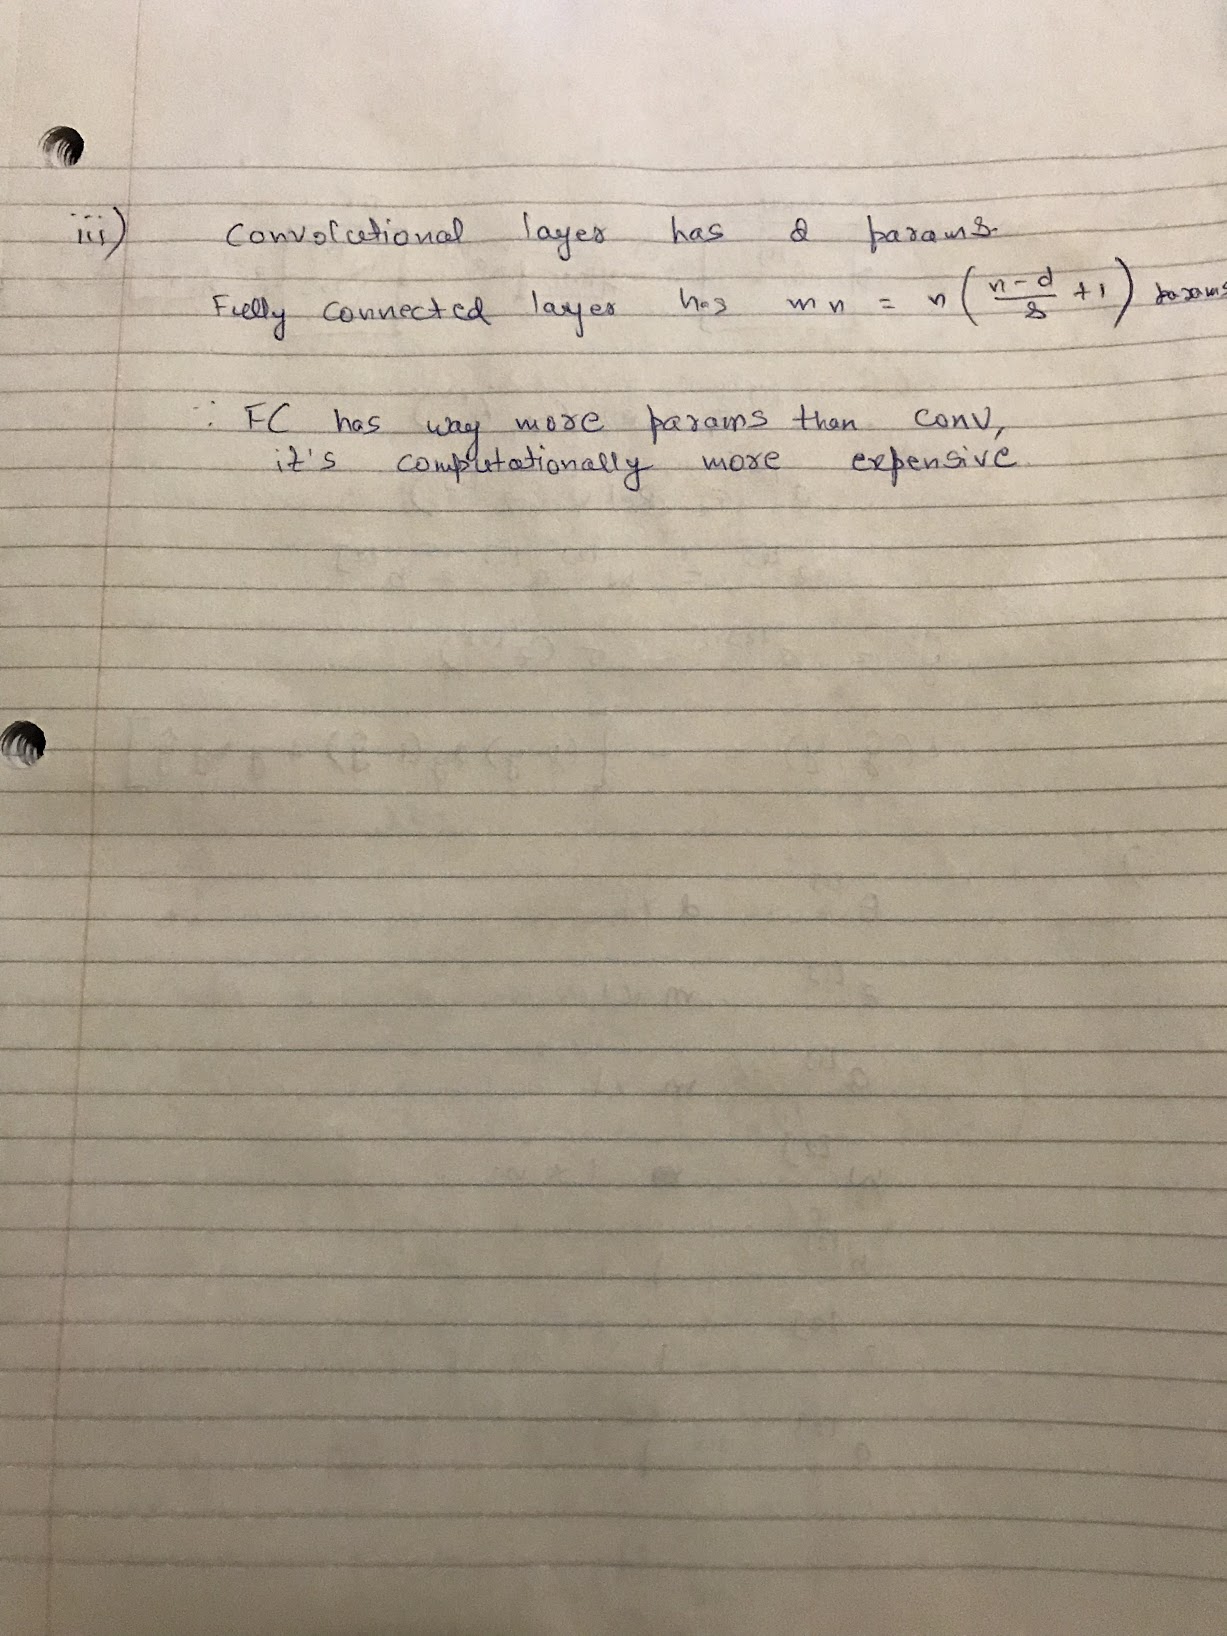 iii) Convolutional layer has d params.
Fully connected layer has mn = n ( (n-d)/s + 1 ) params
∵ FC has way more params than conv,
it's computationally more expensive.